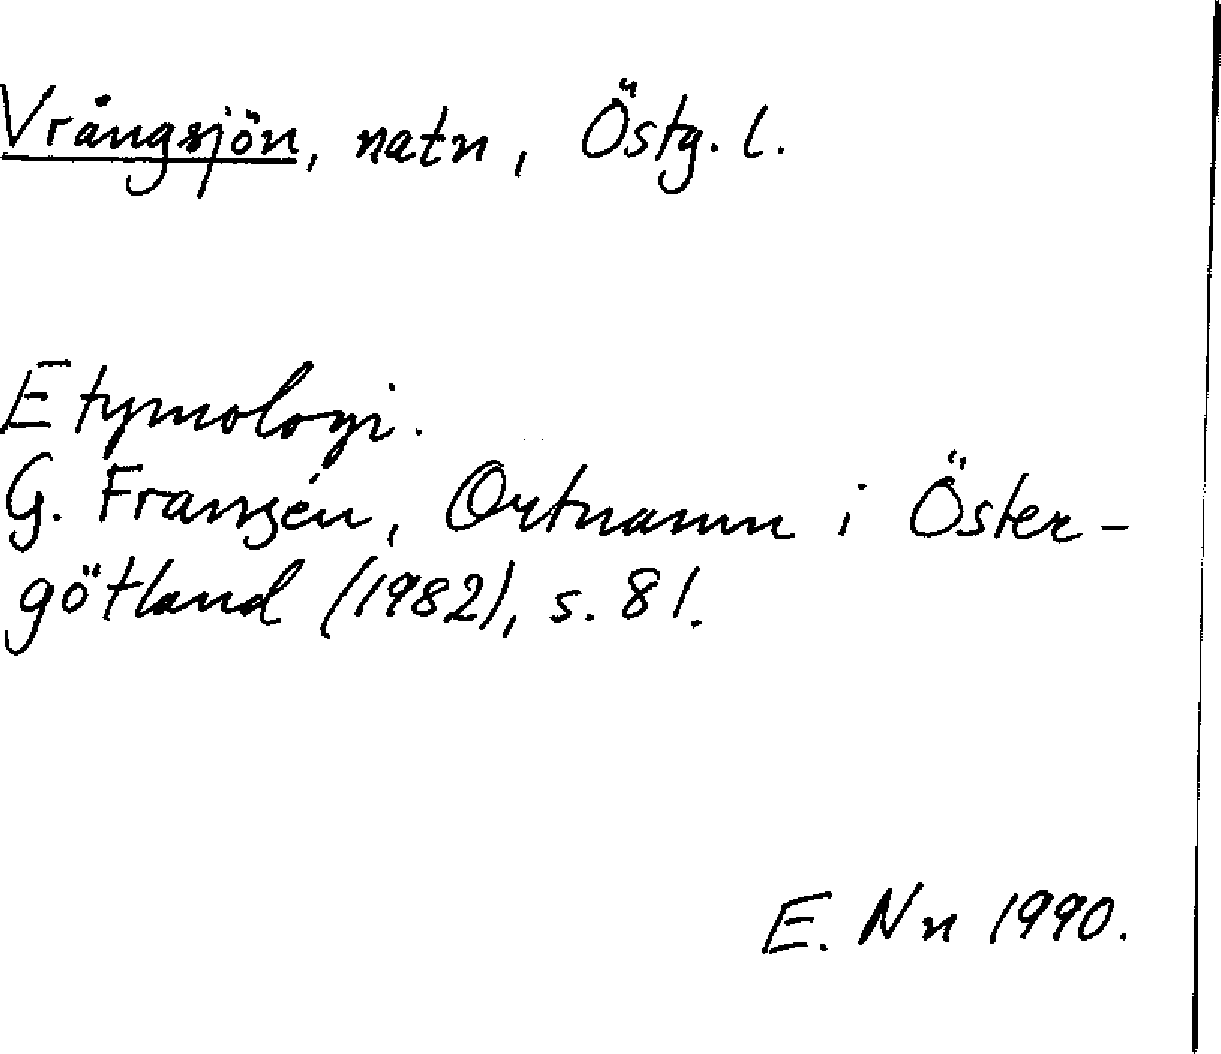 Vrångsjön, natn, Östg. l.
Etymologi.
G. Franzén, Ortnamn i Öster-
götland (1982), s. 81.
E. Nn 1990.